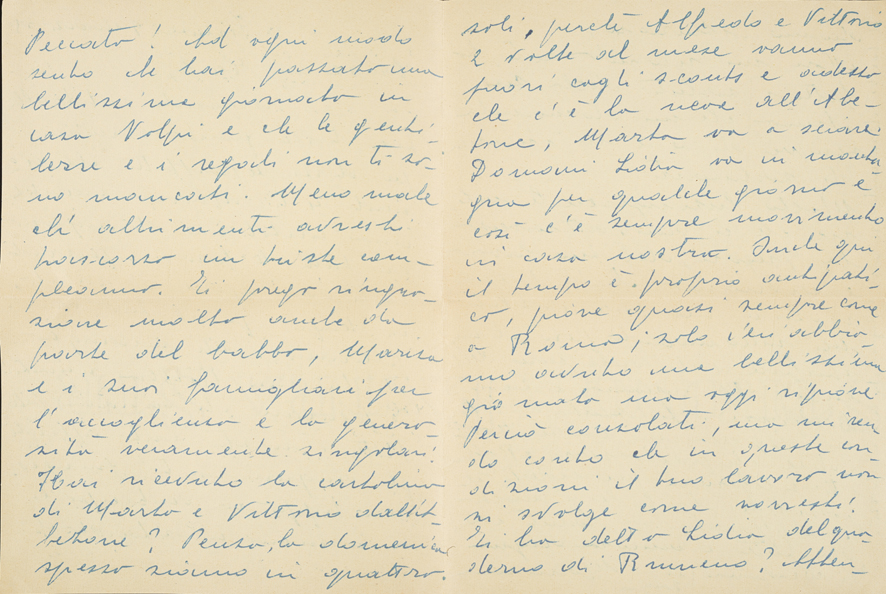 Peccato! Ad ogni modo
sento che hai passato una
bellissima giornata in
casa Volpi e che le genti-
lezze e i regali non ti so-
no mancati. Meno male
chè altrimenti avresti
trascorso un triste com-
pleanno. Ti prego ringra-
ziare molto anche da
parte del babbo, Marisa
e i suoi famigliari per
l'accoglienza e la genero-
sità veramente singolari.
Hai ricevuto la cartolina
di Marta e Vittorio dall'A-
betone? Pensa, la domenica
spesso siamo in quattro.
soli, perchè Alfredo e Vittorio
2 volte al mese vanno
fuori cogli scouts e adesso
che c'è la neve all'Abe-
tone, Marta va a sciare.
Domani Lidia va in monta-
gna per qualche giorno e
così c'è sempre movimento
in casa nostra. Anche qui
il tempo è proprio antipati-
co, piove quasi sempre come
a Roma; solo ieri abbia-
mo avuto una bellissima
giornata ma oggi ripiove
Perciò consolati, ma mi ren-
do conto che in queste con-
dizioni il tuo lavoro non
si svolge come vorresti.
Ti ha detto Lidia del qua-
derno di Rumeno? Atten-